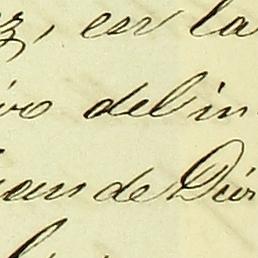 z, en la
ivo del in
uan de Dio